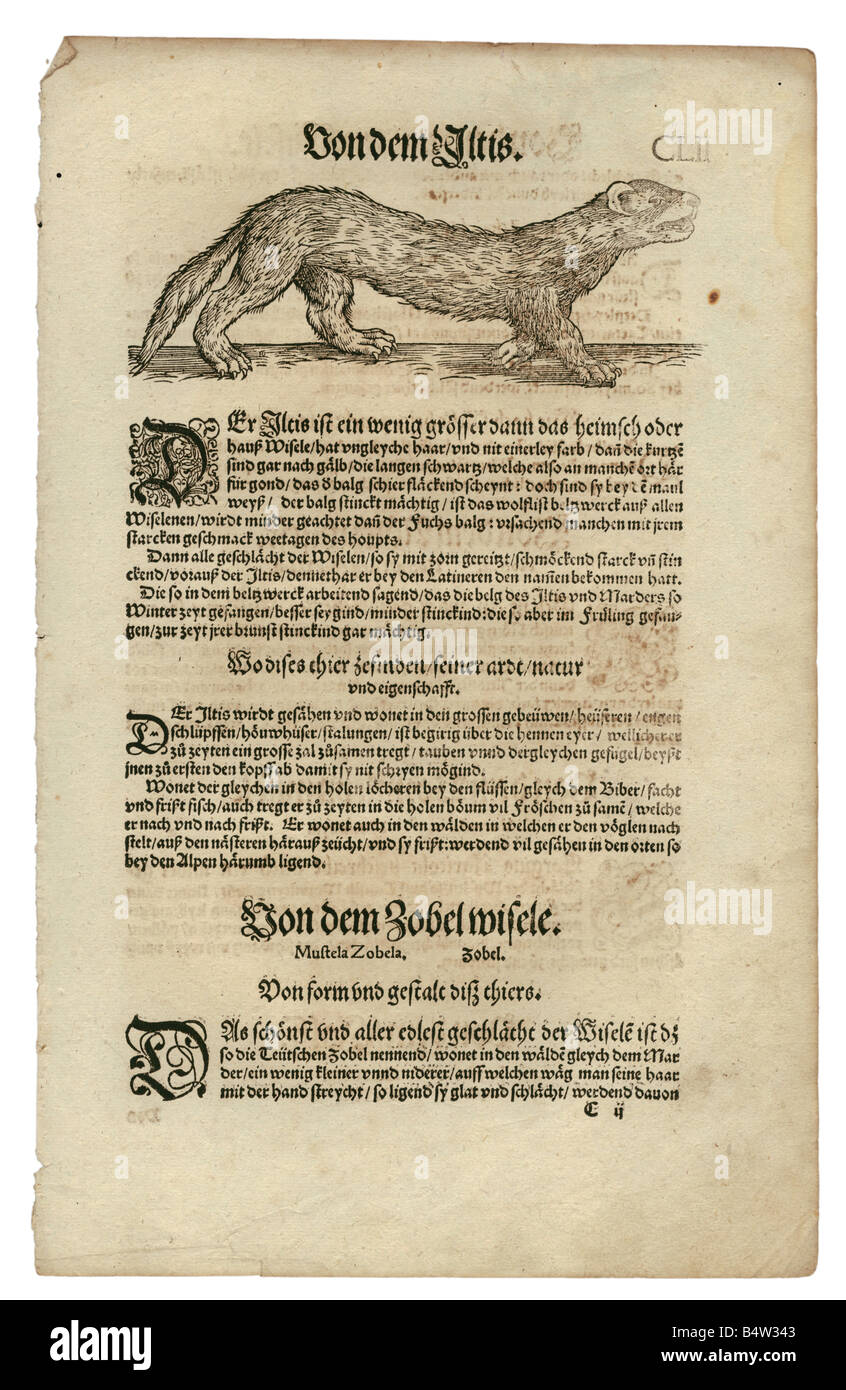 Von dem Iltis. CLII
DEr Iltis ist ein wenig grösser dann das heimsch oder
hauß Wisele/hat vngleyche haar/vnd nit einerley farb/dañ die kurtzē
sind gar nach gälb/die langen schwartz/welche also an manchē ort här
für gond/das ð balg schier fläckend scheynt: doch sind sy bey dē maul
weyß/ der balg stinckt mächtig/ ist das wolflist beltzwerck auß allen
Wiselenen/wirdt minder geachtet dañ der Fuchs balg: vrsachend manchen mit jrem
starcken geschmack weetagen des houpts.
Dann alle geschlächt der Wiselen/so sy mit zorn gereitzt/schmöckend starck vñ stin
ckend/vorauß der Iltis/dennethar er bey den Latineren den nam̄en bekommen hatt.
Die so in dem beltzwerck arbeitend sagend/das die belg des Iltis vnd Marders so
Winterzeyt gefangen/besser seygind/minder stinckind: die so aber im Früling gefan-
gen/zur zeyt jrer brunst stinckind gar mächtig.
Wo dises thier zefinden/seiner ardt/natur
vnd eigenschafft.
DEr Iltis wirdt gesähen vnd wonet in den grossen gebeüwen/heüseren/engen
schlüpffen/höuwhüser/stalungen/ist begirig über die hennen eyer/ wellicherer
zů zeyten ein grosse zal zůsamen tregt/ tauben vnnd dergleychen gefügel/beyßt
jnen zů ersten den kopff ab damit sy nit schryen mögind.
Wonet der gleychen in den holen löcheren bey den flüssen/gleych dem Biber/facht
vnd frißt fisch/auch tregt er zů zeyten in die holen böum vil Fröschen zů samē/ welche
er nach vnd nach frißt. Er wonet auch in den wälden in welchen er den vöglen nach
stelt/auß den nästeren härauß zeücht/vnd sy frißt: werdend vil gesähen in den orten so
bey den Alpen härumb ligend.
Von dem Zobelwisele.
Mustela Zobela. Zobel.
Von form vnd gestalt diß thiers.
DAs schönst vnd aller edlest geschlächt der Wiselē ist dz
so die Teütschen Zobel nennend/wonet in den wäldē gleych dem Mar
der/ein wenig kleiner vnnd niderer/auff welchen wäg man seine haar
mit der hand streycht/so ligend sy glat vnd schlächt/werdend dauon
C ij
alamy
Image ID: B4W343
www.alamy.com